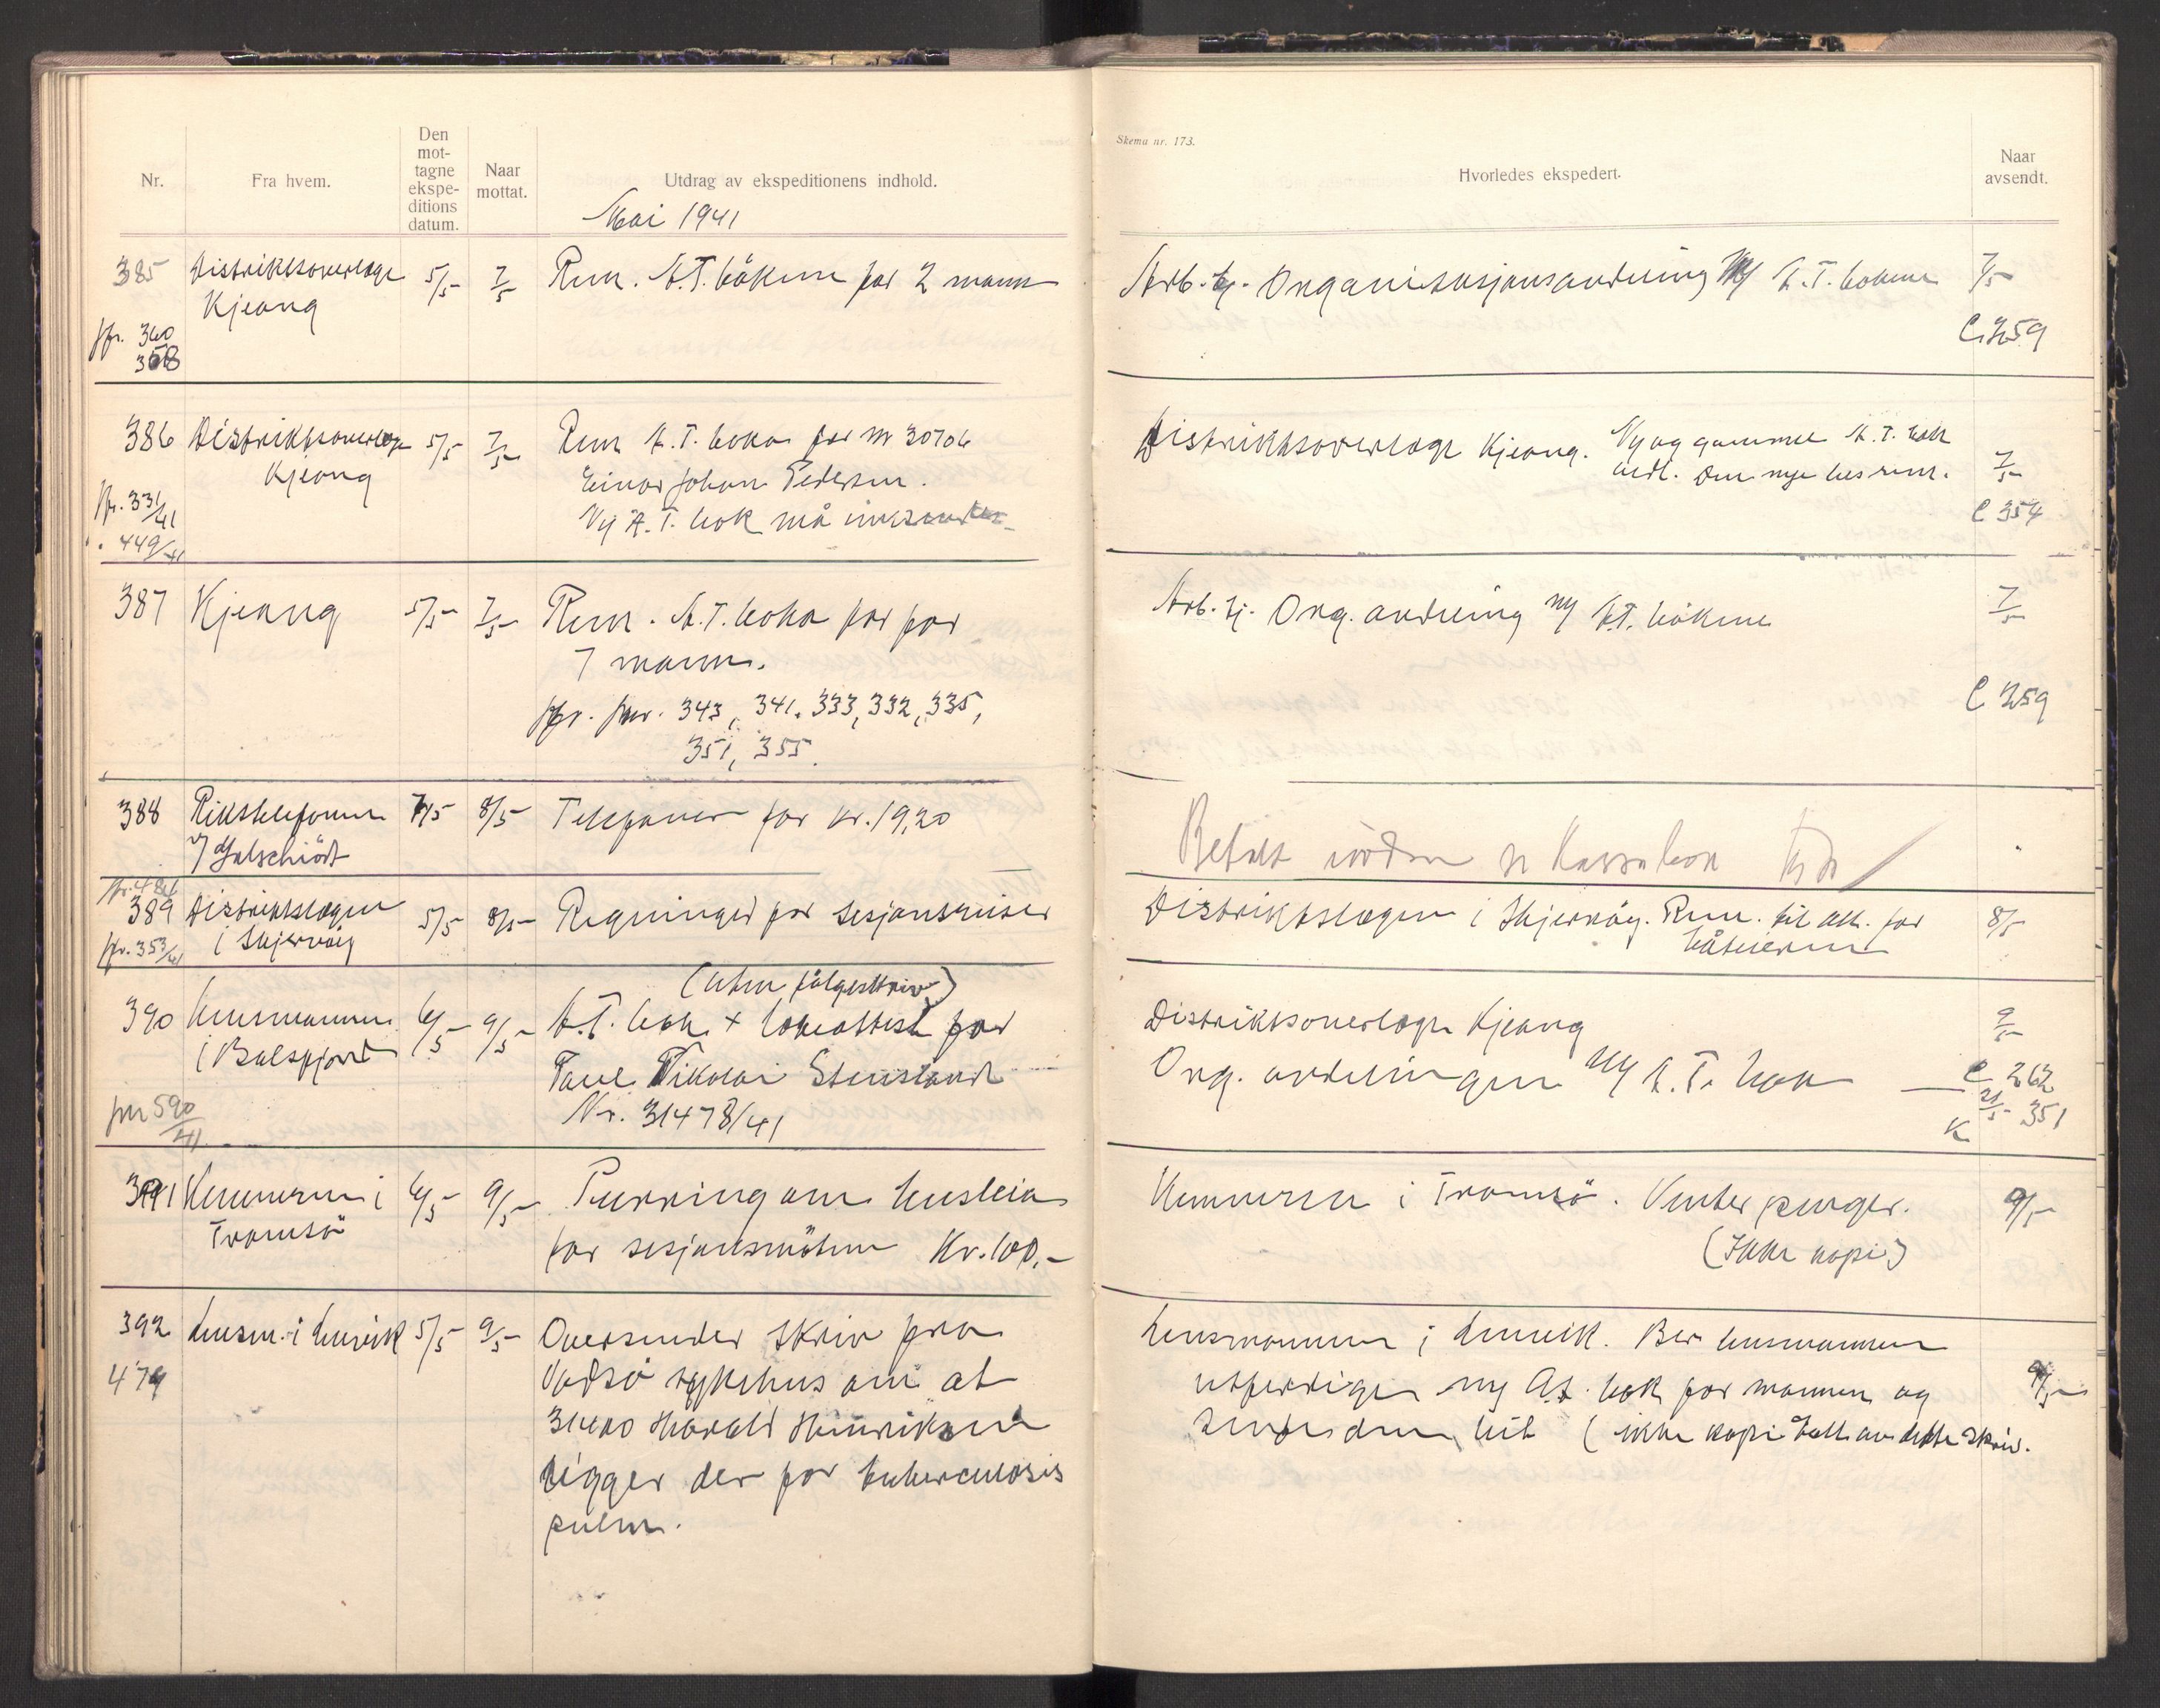 Nr.
Fra hvem.
Den
mot-
tagne
ekspe-
ditions
datum.
Naar
mottat.
Utdrag av ekspeditionens indhold.
Mai 1941
385 Distriktsoverlege 5/5 7/5 Rem. A.T. bøkene for 2 mann
Kjeang
jfr. 360
358
386 Distriktsoverlege 5/5 7/5 Rem A.T. boka for nr 30706
Kjeang Einar Johan Pedersen.
jfr. 331/41 Ny A.T. bok må
449/41
387 Kjeang 5/5 7/5 Rem. A.T. boka for for
7 mann.
jfr. jnr. 343, 341, 333, 332, 335,
351, 355.
388 Rikstelefonen 7/5 8/5 Telefoner for kr. 19,20
389 Distriktslegen 5/5 8/5 Regninger for sesjonsreiser
jfr. 353/41 i Skjervøy
(uten følgeskriv)
390 Lensmannen 6/5 9/5 A.T. bok + legeattest for
i Balsfjord Paul Nikolai Stensland
jnr 590/41 Nr. 31478/41
391 Kemneren i 6/5 9/5 Purring om husleia
Tromsö for sesjonsmötene Kr. 100.-
392 Lensm. i Lenvik 5/5 9/5 Oversender skriv fra
479 Vadsö sykehus om at
Harald Hinriksen
ligger der for tuberculosis
pulm.
Skema nr. 173.
Hvorledes ekspedert.
Naar
avsendt.
Arb. tj. Organisasjonsavdeling Ny A.T. bökene 7/5
C. 359
Distriktsoverlege Kjeang. Ny og gammel A.T. bok
vedl. Den nye bes rem. 7/5
C 354
Arb. tj. Org. avdeling ny A.T. bökene 7/5
C 359
Betalt Kassabok
Distriktslegen i Skjervöy. Rem. til att. for 8/5
båteierne
Distriktsoverlege Kjeang 9/5
Org. avdelingen Ny A.T. bok C 262
21/5 351
K
Kemneren i Tromsö. Venter penger. 9/5
(Ikke kopi)
Lensmannen i Lenvik. Ber lensmannen
utferdige ny A.T. bok for mannen og 9/5
sende den hit (ikke kopi tatt av dette skriv.